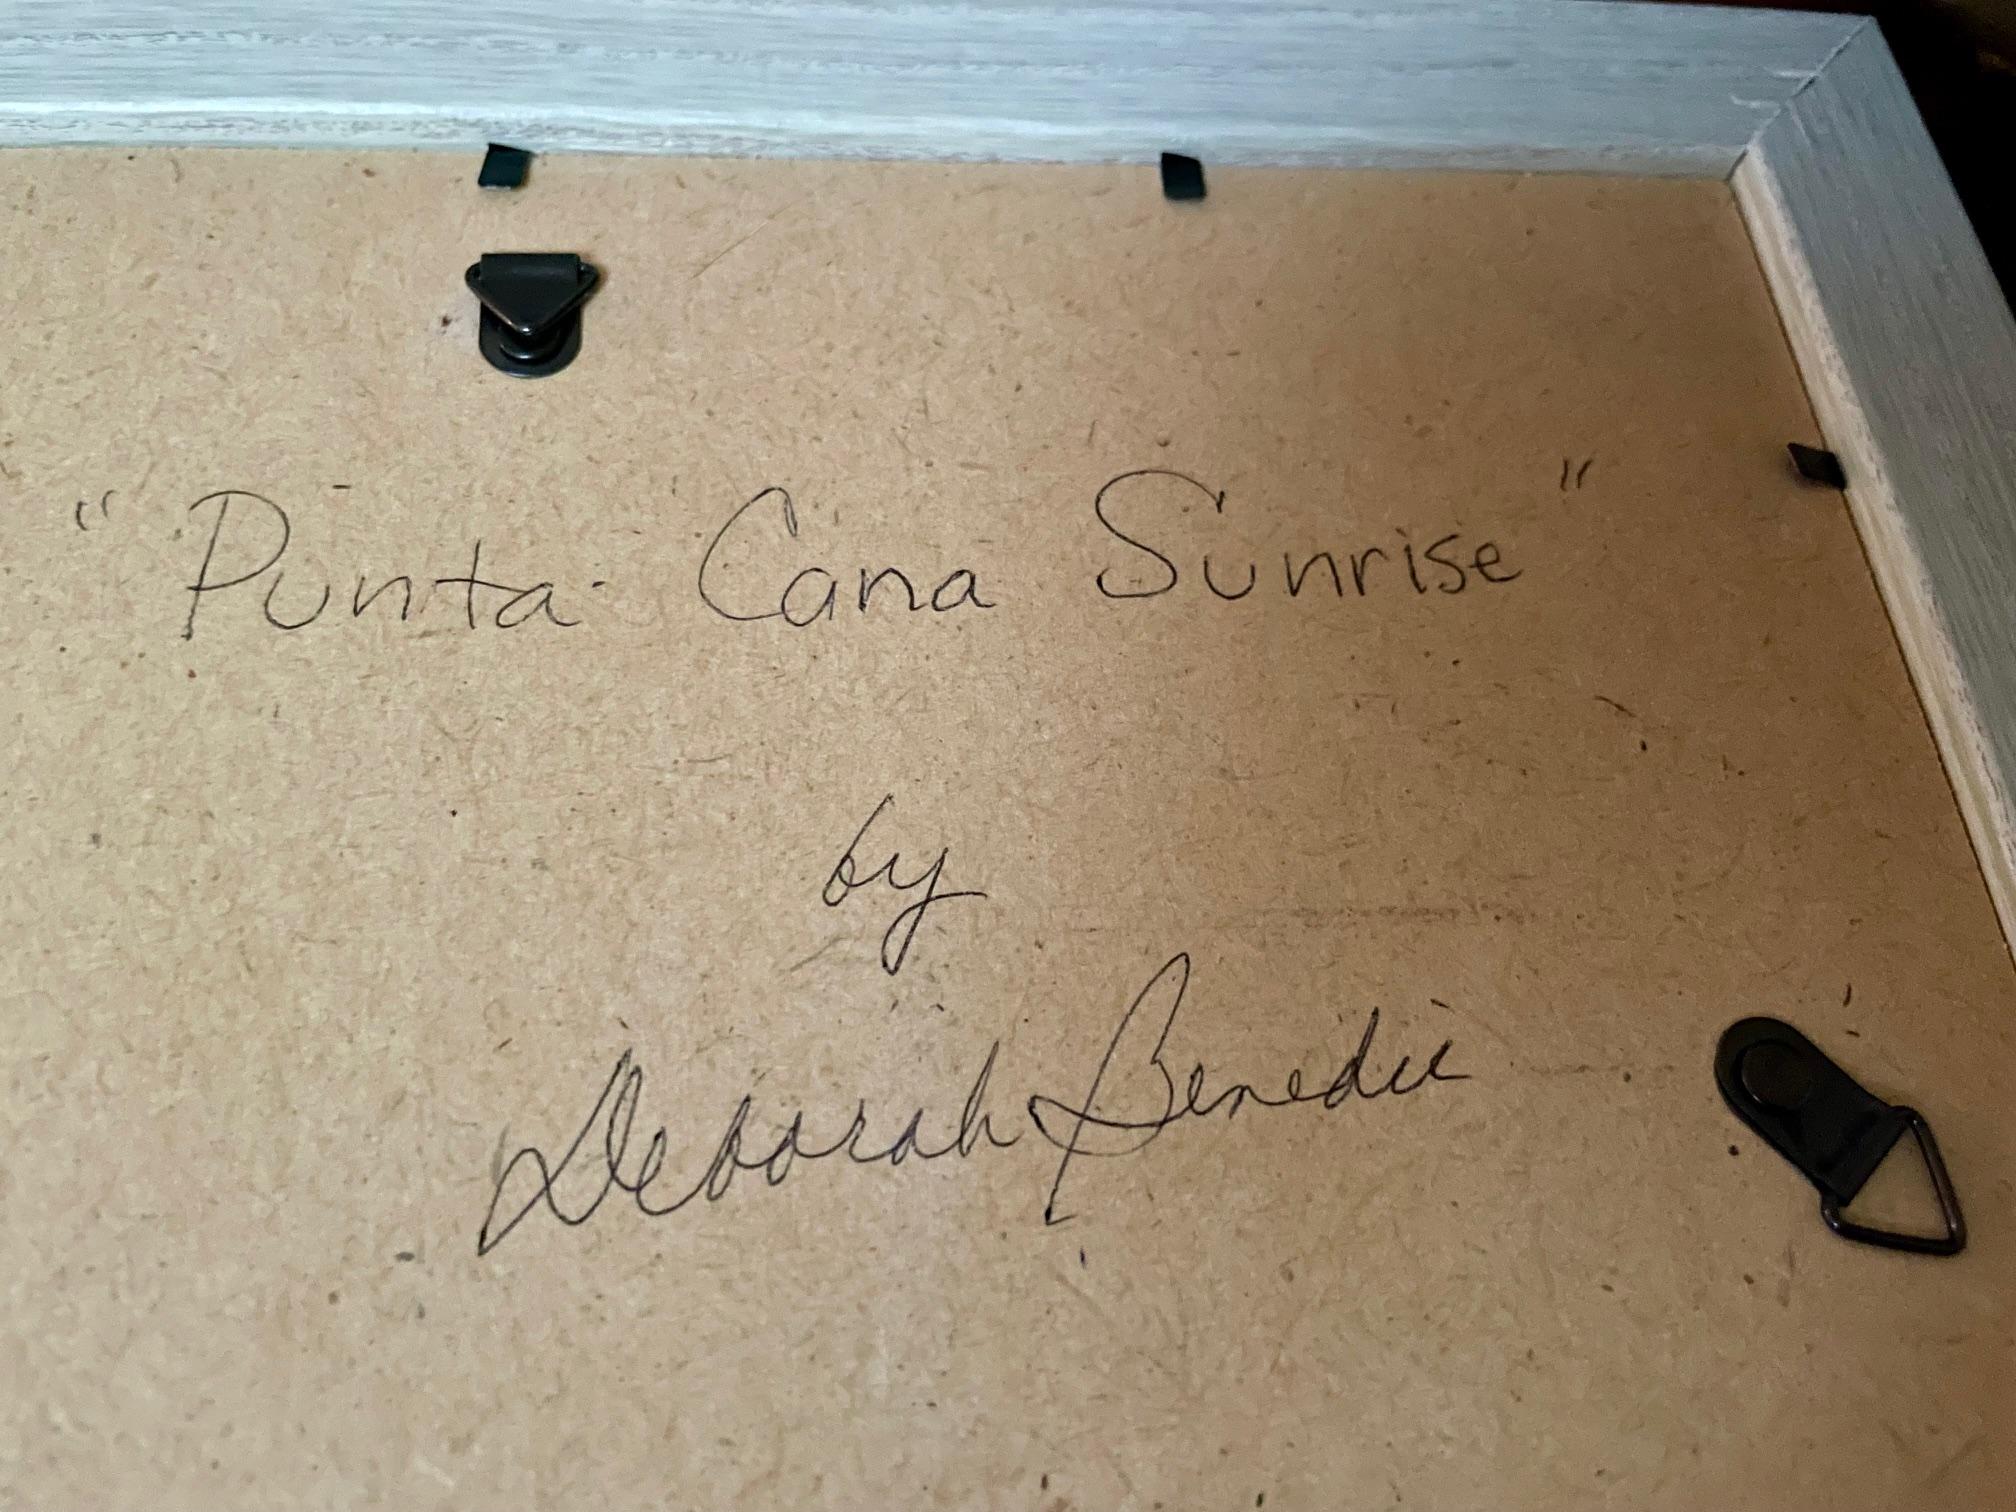 "Punta Cana Sunrise"
by
Deborah Benedie